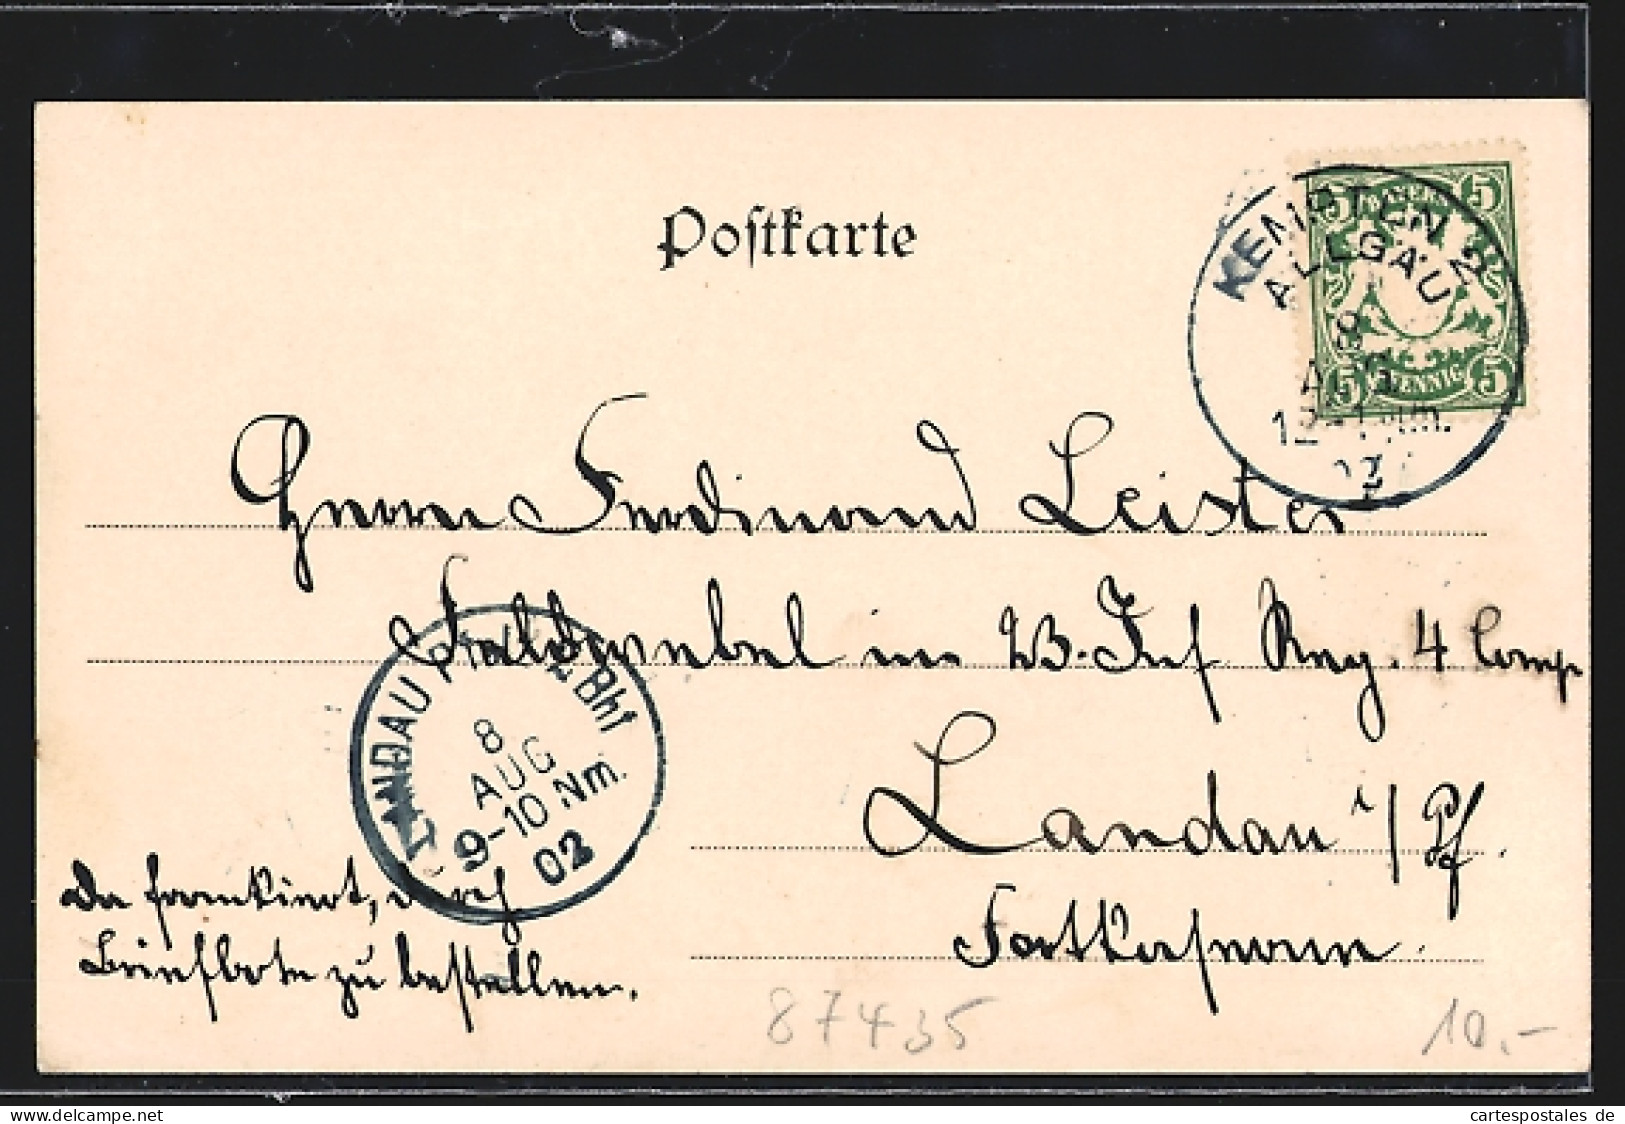 Postkarte
BAYERN
5 5
KEMPTEN 2
ALLGÄU
8
AUG
12-1 Nm.
02
5 PFENNIG 5
Herrn Ferdinand Leister
Feldwebel im 23. Inf Reg. 4 Comp
Landau i/Pf.
LANDAU PFALZ Bhf
8
AUG
9-10 Nm.
02
Da frankirt, durch
Briefbote zu bestellen.
87435
10.-
cartespostales de